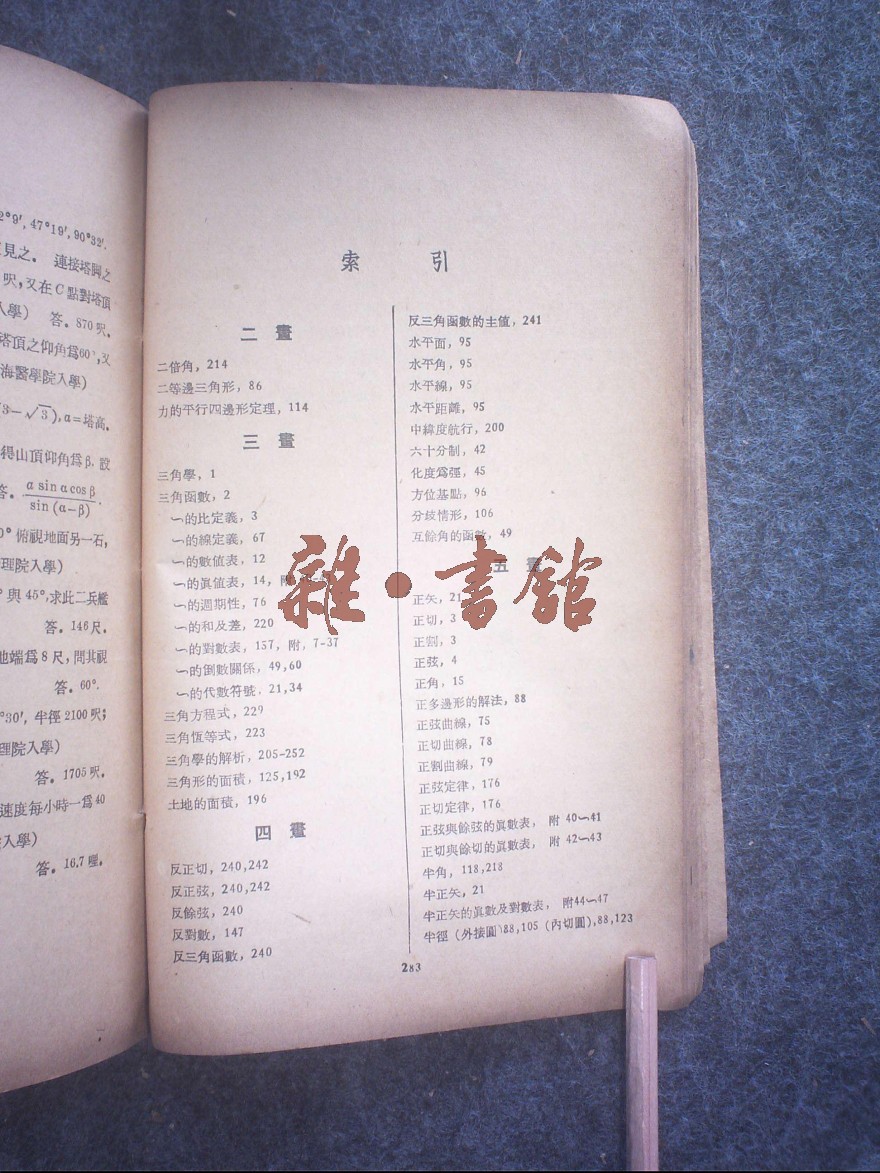 2°9′, 47°19′, 90°32′.
見之。 連接塔脚之
呎,又在C點對塔頂
入學) 答。870呎。
塔頂之仰角爲60°,又
海醫學院入學)
3-√3), α=塔高。
得山頂仰角爲β. 設
答. α sin α cos β / sin (α-β) .
0° 俯視地面另一石,
理院入學)
° 與 45°,求此二兵艦
答。146尺。
地端爲8尺,問其視
答。60°.
°30′, 半徑 2100呎;
理院入學)
答。1705呎。
速度每小時一爲40
入學)
答。16.7哩。
索 引
二 畫
二倍角,214
二等邊三角形,86
力的平行四邊形定理,114
三 畫
三角學,1
三角函數,2
∽的比定義,3
∽的線定義,67
∽的數值表,12
∽的眞值表,14,附
∽的週期性,76
∽的和及差,220
∽的對數表,157,附,7-37
∽的倒數關係,49,60
∽的代數符號,21,34
三角方程式,229
三角恆等式,223
三角學的解析,205-252
三角形的面積,125,192
土地的面積,196
四 畫
反正切,240,242
反正弦,240,242
反餘弦,240
反對數,147
反三角函數,240
反三角函數的主值,241
水平面,95
水平角,95
水平線,95
水平距離,95
中緯度航行,200
六十分制,42
化度爲弳,45
方位基點,96
分歧情形,106
互餘角的函數,49
五 畫
正矢,21
正切,3
正割,3
正弦,4
正角,15
正多邊形的解法,88
正弦曲線,75
正切曲線,78
正割曲線,79
正弦定律,176
正切定律,176
正弦與餘弦的眞數表, 附 40∽41
正切與餘切的眞數表, 附 42∽43
半角,118,218
半正矢,21
半正矢的眞數及對數表, 附44∽47
半徑 (外接圓)88,105 (內切圓),88,123
283
雜·書館